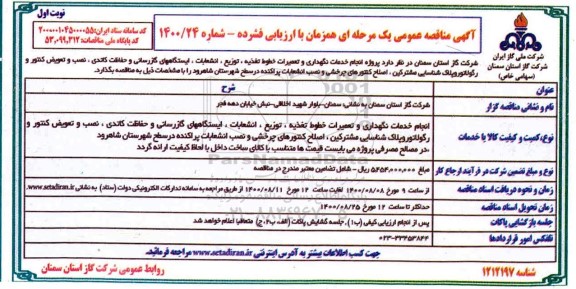 نوبت اول
آگهی مناقصه عمومی یک مرحله ای همزمان با ارزیابی فشرده - شماره ۱۴۰۰/۲۴
شرکت ملی گاز ایران
شرکت گاز استان سمنان
(سهامی خاص)
کد سامانه ستاد ایران:
کد پایگاه ملی مناقصات:
شرکت گاز استان سمنان در نظر دارد پروژه انجام خدمات نگهداری و تعمیرات خطوط تغذیه ، توزیع ، انشعابات ، ایستگاههای گازرسانی و حفاظت کاتدی ، نصب و تعویض کنتور و
رگولاتور وپلاک شناسایی مشترکین ، اصلاح کنتورهای چرخشی و نصب انشعابات پراکنده درسطح شهرستان شاهرود را با مشخصات ذیل به مناقصه بگذارد.
عنوان
شرح
نام و نشانی مناقصه گزار
شرکت گاز استان سمنان به نشانی: سمنان-بلوار شهید اخلاقی-نبش خیابان دهه فجر
نوع، کمیت و کیفیت کالا یا خدمات
انجام خدمات نگهداری و تعمیرات خطوط تغذیه ، توزیع ، انشعابات ، ایستگاههای گازرسانی و حفاظت کاتدی ، نصب و تعویض کنتور و
رگولاتور وپلاک شناسایی مشترکین ، اصلاح کنتورهای چرخشی و نصب انشعابات پراکنده درسطح شهرستان شاهرود
-در مصالح مصرفی پروژه می بایست قیمت ها متناسب با کالای ساخت داخل با لحاظ کیفیت ارائه گردد
نوع و مبلغ تضمین شرکت در فرآیند ارجاع کار
ریال - شامل تضامین معتبر مندرج در مناقصه
زمان و نحوه دریافت اسناد مناقصه
از ساعت ۹ مورخ ۱۴۰۰/۰۸/۰۸ لغایت ساعت ۱۲ مورخ ۱۴۰۰/۰۸/۱۱ از طریق مراجعه به سامانه تدارکات الکترونیکی دولت (ستاد) به نشانی www.setadiran.ir
زمان تحویل اسناد مناقصه
حداکثر تا ساعت ۱۲ مورخ ۱۴۰۰/۰۸/۲۵
جلسه بازگشایی پاکات
پس از انجام ارزیابی کیفی (ب۱) ، جلسه گشایش پاکات (الف،ب۲،ج) متعاقباً اعلام خواهد شد
تلفکس امور قراردادها
جهت کسب اطلاعات بیشتر به آدرس اینترنتی www.setadiran.ir مراجعه فرمائید.
شناسه ۱۲۱۲۱۹۷
روابط عمومی شرکت گاز استان سمنان